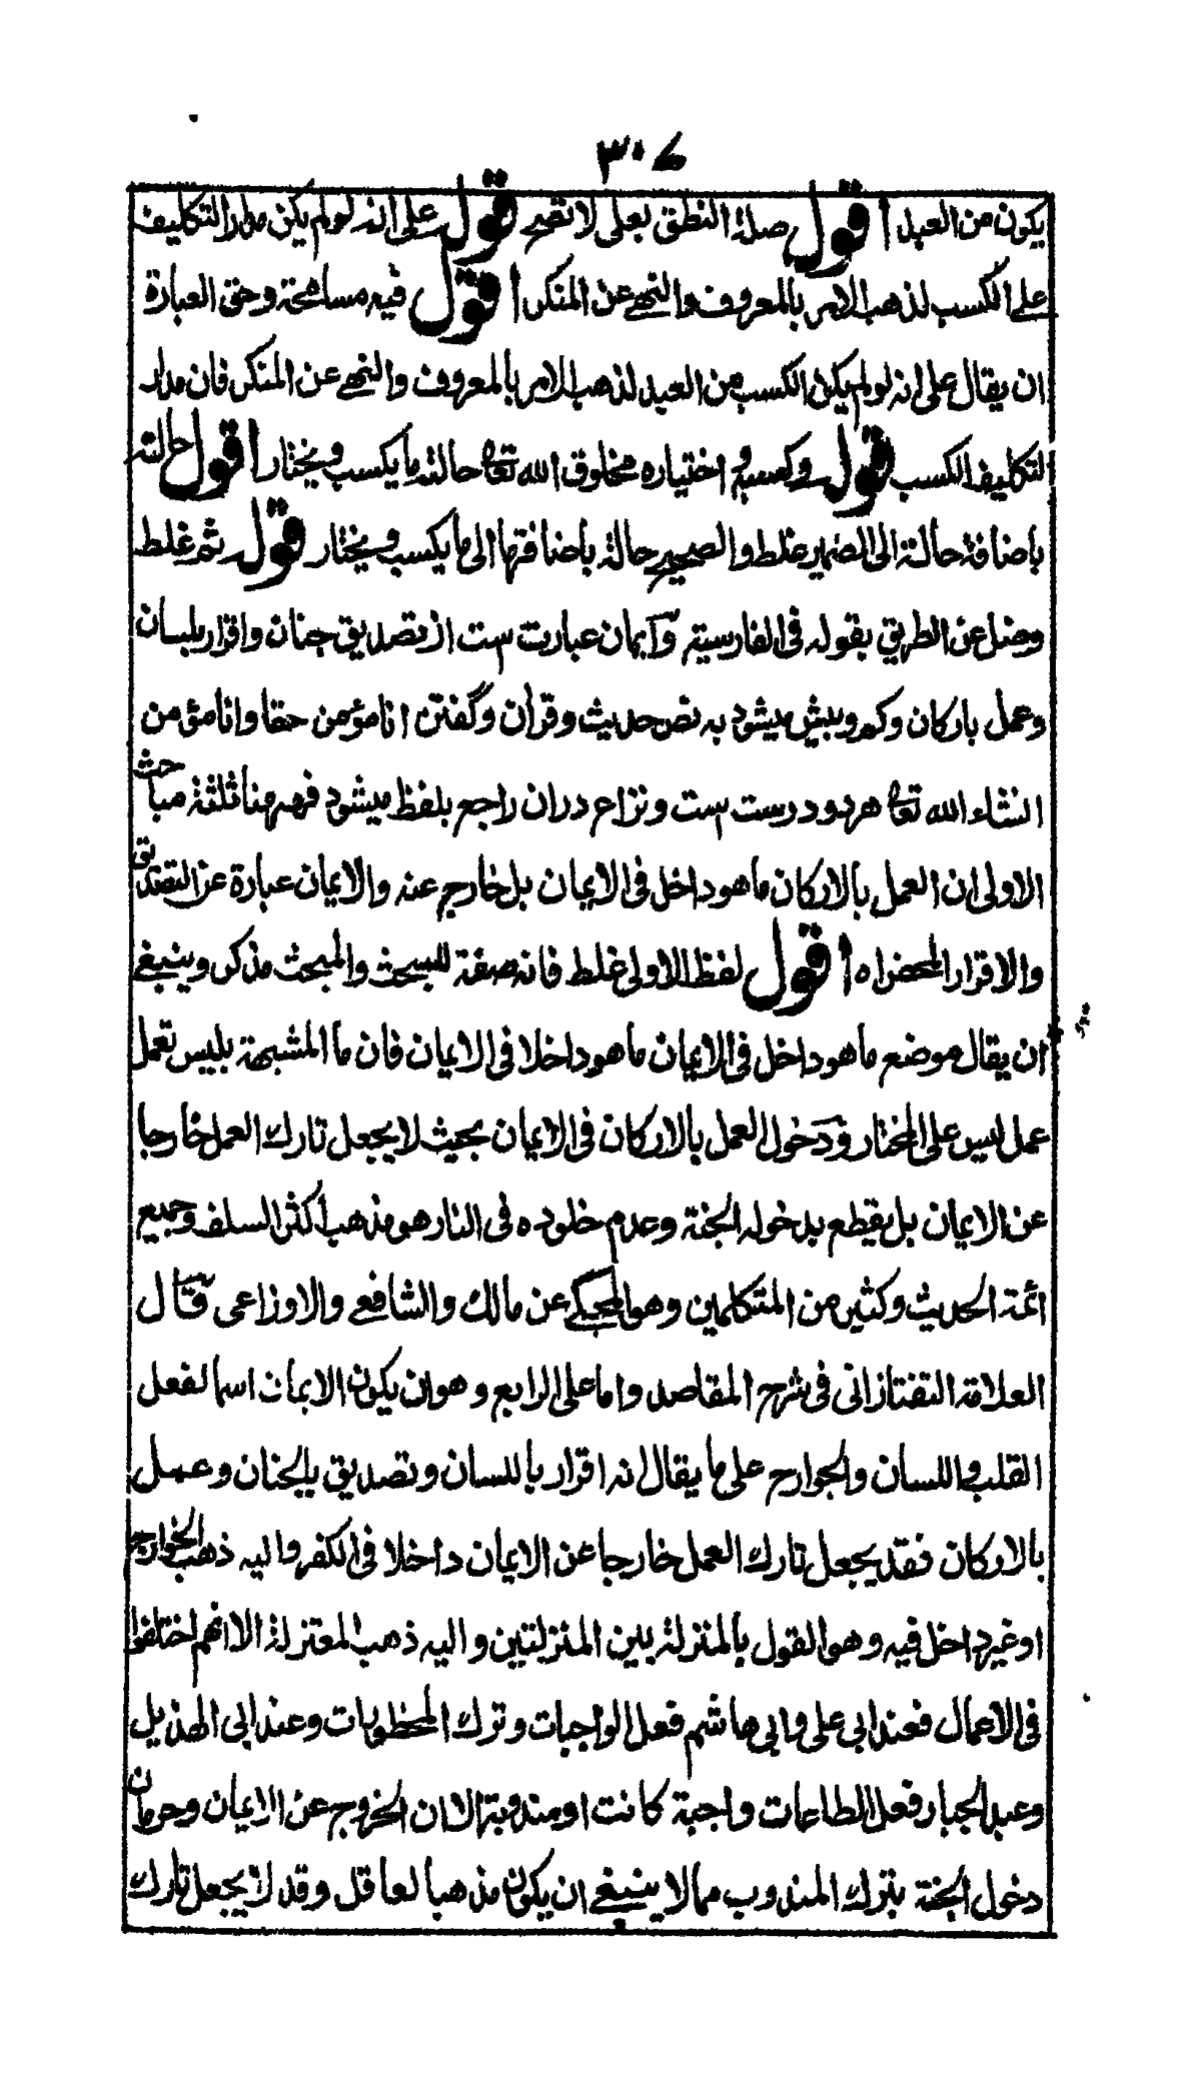 ۳۰۷
يكون من العبد اقول صلة النطق بعلى لا تصح قوله على انه لو لم يكن مدار التكليف
على الكسب لذهب الامر بالمعروف والنهي عن المنكر اقول فيه مسامحة وحق العبارة
ان يقال على انه لو لم يكن الكسب من العبد لذهب الامر بالمعروف والنهي عن المنكر فان مدار
التكليف الكسب قوله وكسبه و اختياره مخلوق الله تعا حالته ما يكسب ويختار اقول حالته
باضافة حالة الى الضمير غلط والصحيح حالة باضافتها الى ما يكسب ويختار قوله ثم غلط
وضل عن الطريق بقوله في الفارسية وايمان عبارت ست از تصديق جنان واقرار بلسان
وعمل باركان وكم وبيش ميشود به نص حديث وقران وگفتن انا مؤمن حقا وانا مؤمن
انشاء الله تعا هر دو درست ست ونزاع دران راجع بلفظ ميشود فههنا ثلثة مباحث
الاولى ان العمل بالاركان ما هو داخل في الايمان بل خارج عنه والايمان عبارة عن التصديق
والاقرار المحض اه اقول لفظ الاولى غلط فانه صفة للمبحث والمبحث مذكر وينبغي
ان يقال موضع ما هو داخل في الايمان ما هو داخلا في الايمان فان ما المشبهة بليس تعمل
عمل ليس على المختار ودخول العمل بالاركان في الايمان بحيث لا يجعل تارك العمل خارجا
عن الايمان بل يقطع بدخوله الجنة وعدم خلوده في النار هو مذهب اكثر السلف وجميع
ائمة الحديث وكثير من المتكلمين وهو المحكي عن مالك والشافعي والاوزاعي قال
العلامة التفتازاني في شرح المقاصد واما على الرابع وهو ان يكون الايمان اسما لفعل
القلب واللسان والجوارح على ما يقال انه اقرار باللسان وتصديق بالجنان وعمل
بالاركان فقد يجعل تارك العمل خارجا عن الايمان داخلا في الكفر واليه ذهب الخوارج
او غير داخل فيه وهو القول بالمنزلة بين المنزلتين واليه ذهب المعتزلة الا انهم اختلفوا
في الاعمال فعند ابي على وابي هاشم فعل الواجبات وترك المحظورات وعند ابي الهذيل
وعبد الجبار فعل الطاعات واجبة كانت او مندوبة الا ان الخروج عن الايمان وحرمان
دخول الجنة بترك المندوب مما لا ينبغي ان يكون مذهبا لعاقل وقد لا يجعل تارك